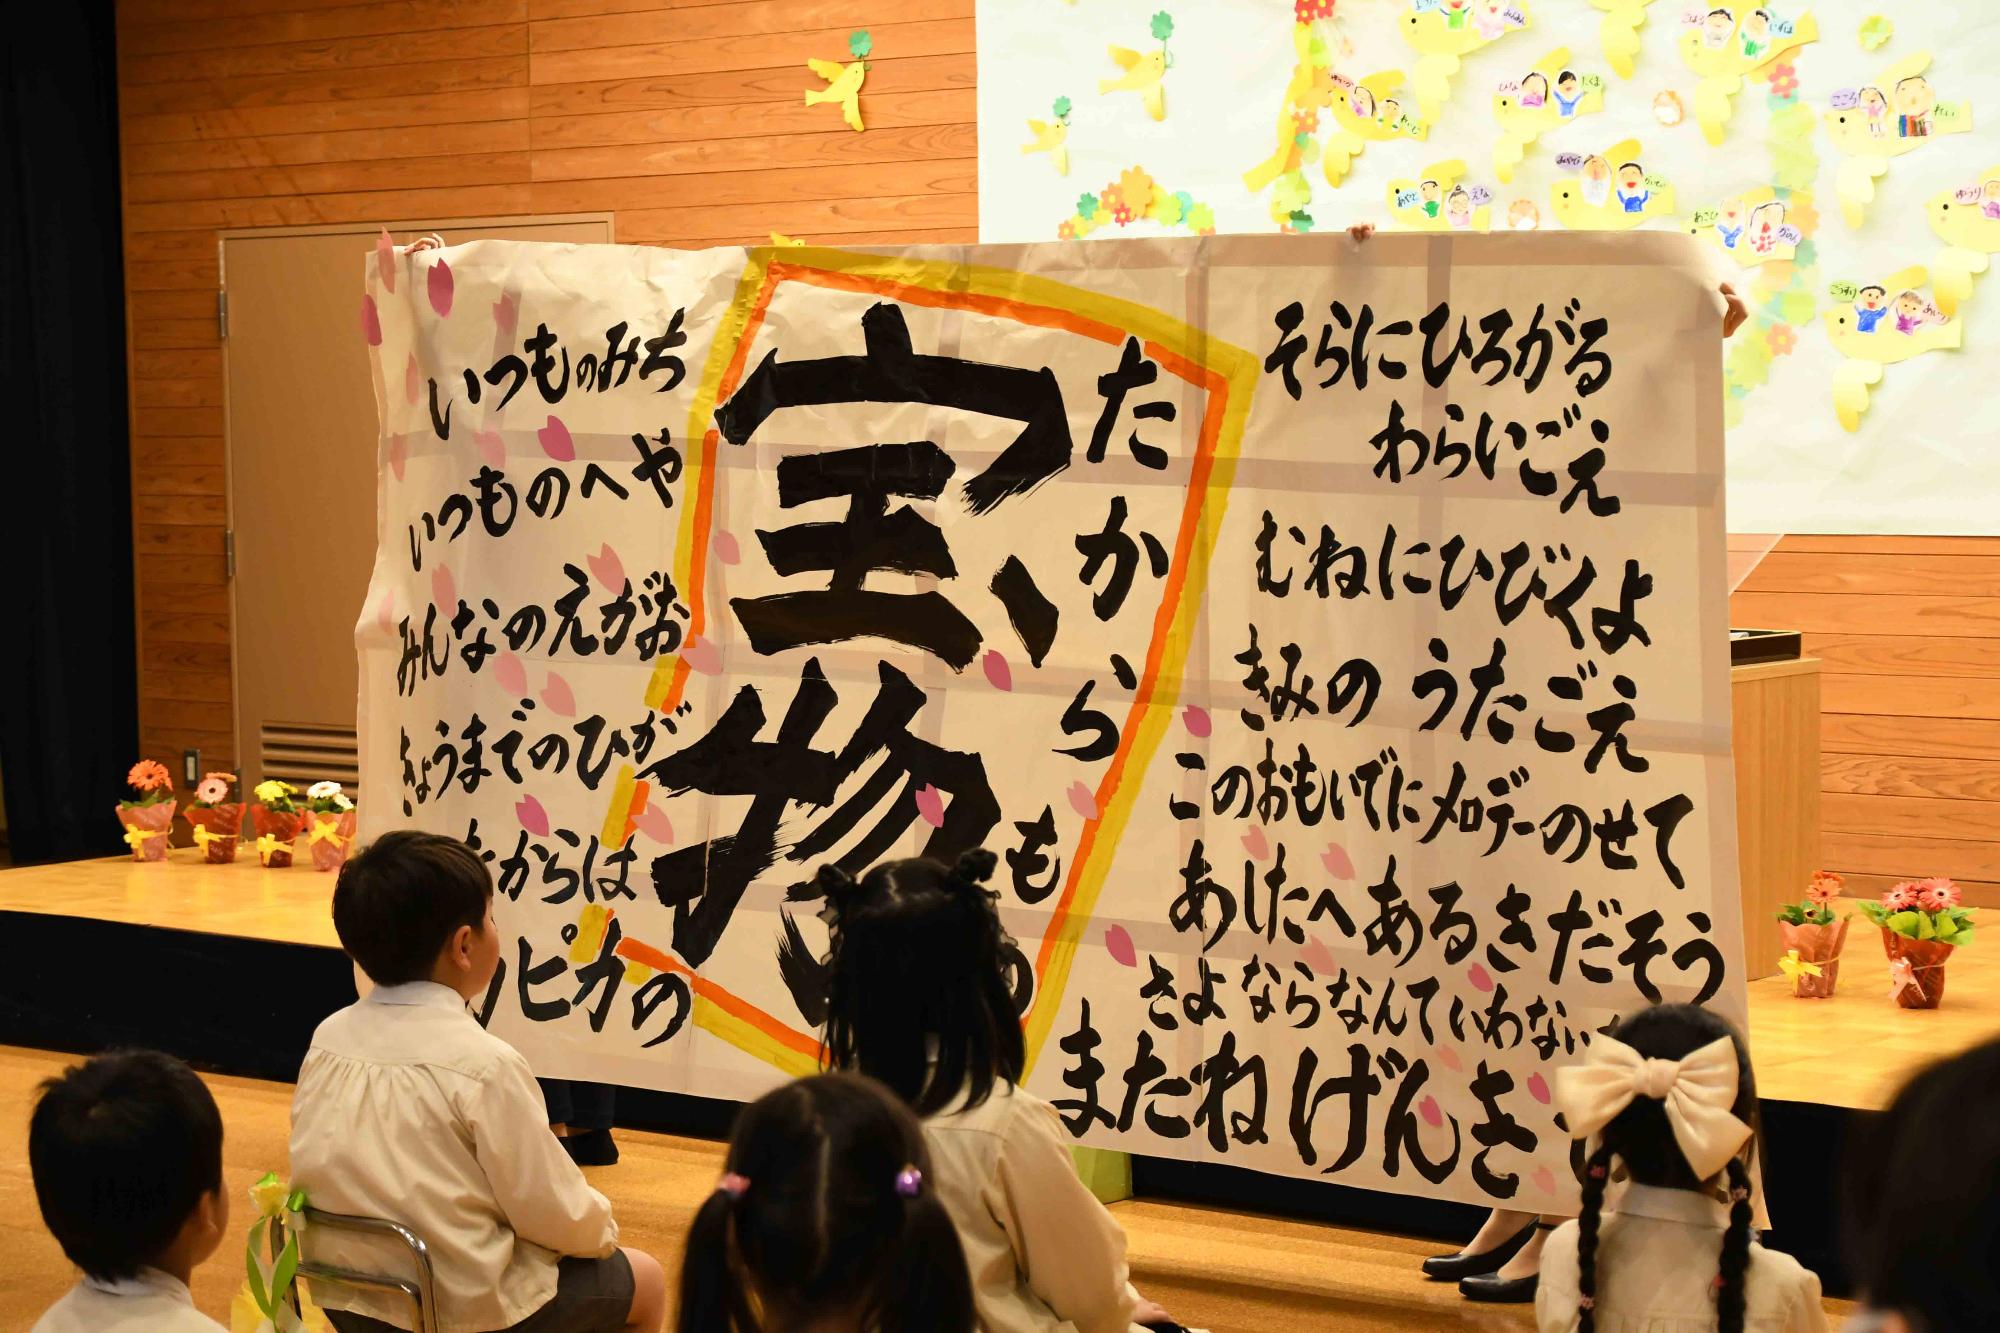 いつものみち
いつものへや
みんなのえがお
きょうまでのひが
からは
ピカの
宝物
たからもの
そらにひろがる
わらいごえ
むねにひびくよ
きみの うたごえ
このおもいでにメロデーのせて
あしたへあるきだそう
さよならなんていわない
またねげんき
ひな
たくま
こころ
れい